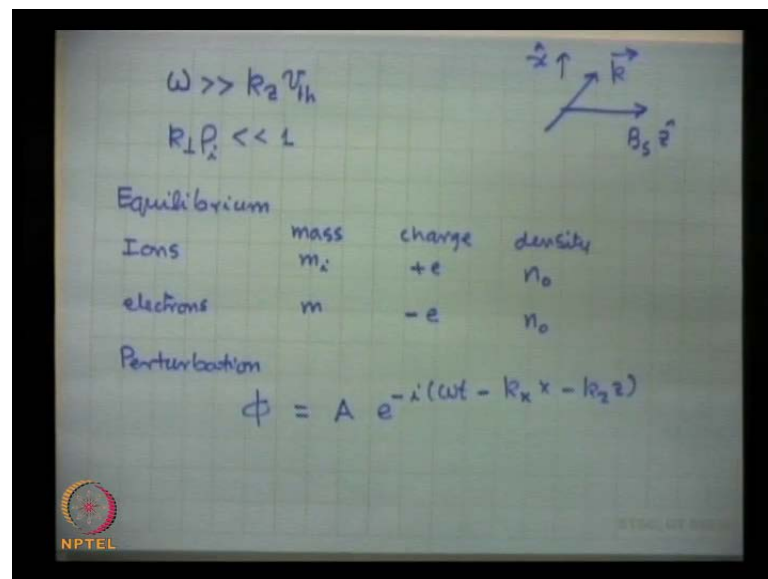 ω >> k_z v_th
k_⊥ ρ_i << 1
x̂ ↑ k⃗
B_s ẑ
Equilibrium
mass charge density
Ions m_i +e n_0
electrons m -e n_0
Perturbation
ϕ = A e^{-i(ωt - k_x x - k_z z)}
NPTEL